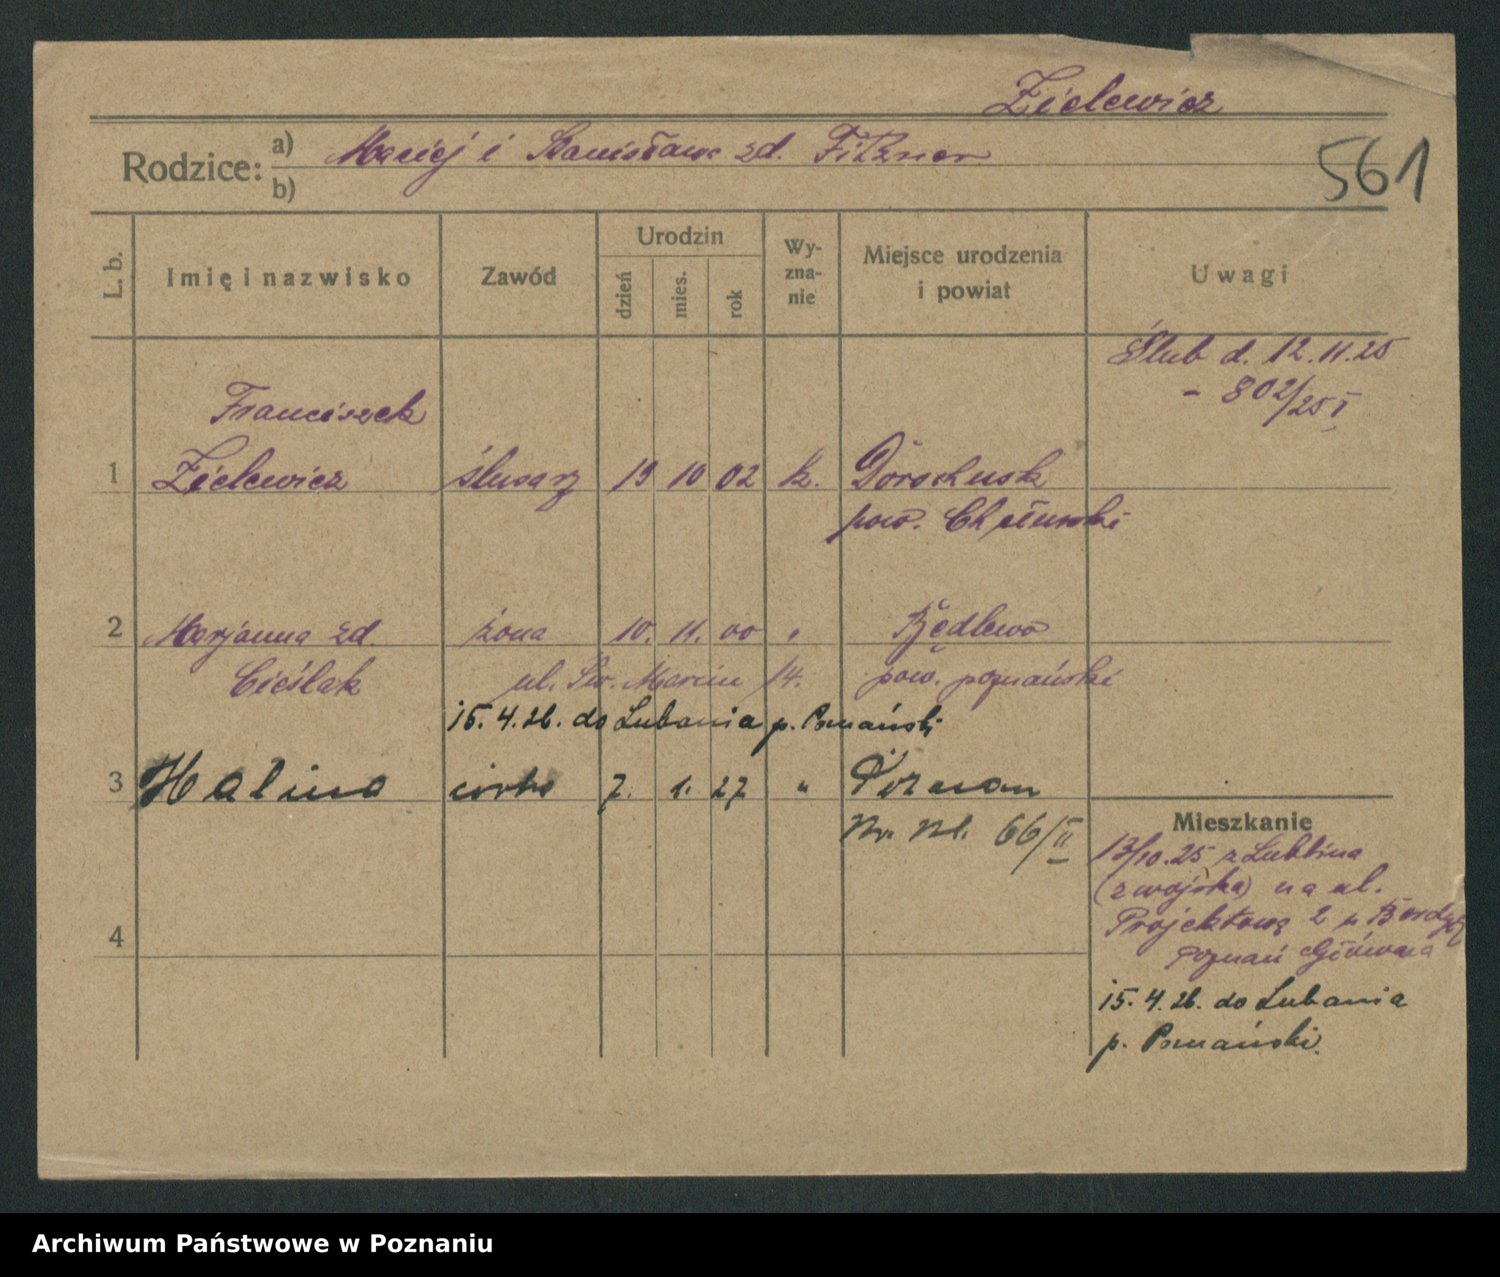 Zielewicz
Rodzice: a) Maciej i Stanisława zd. Fitzner
b)
561
L. b.
Imię i nazwisko
Zawód
Urodzin
dzień
mies.
rok
Wy-
zna-
nie
Miejsce urodzenia
i powiat
Uwagi
Ślub d. 12.11.25
- 802/25 I
Franciszek
1 Zielewicz ślusarz 19 10 02 k. Dorohusk
pow. Chełmski
2 Marjanna zd. żona 10. 11. 00 " Będlewo
Cieślak ul. Św. Marcin 14. pow. poznański
15.4.26. do Lubania p. Poznański
3 Halina córka 7. 1. 27 " Poznań
66/II
4
Mieszkanie
13/10.25 z Lublina
(z wojska) na ul.
Projektowę 2
Poznań Główna
15.4.26. do Lubania
p. Poznański.
Archiwum Państwowe w Poznaniu